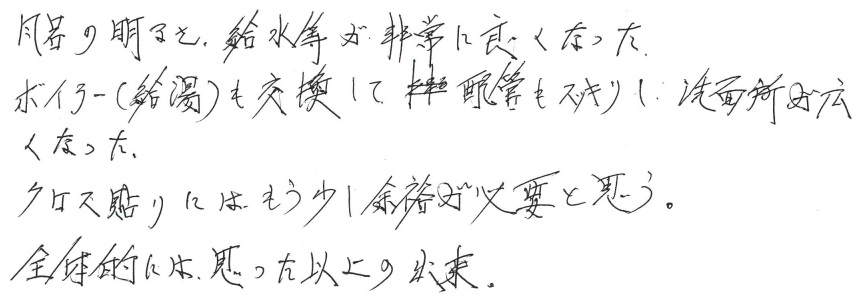 風呂の明るさ、給水等が非常に良くなった。
ボイラー(給湯)も交換して 配管もスッキリし、洗面所が広
くなった。
クロス貼りにはもう少し余裕が必要と思う。
全体的には、思った以上の出来。